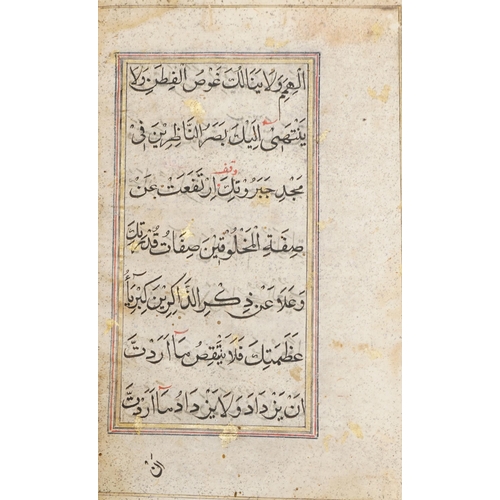 الْهِمَمِ وَلَا يَنَالُكَ غَوْصُ الْفِطَنِ وَلَا
يَنْتَهِي اِلَيْكَ بَصَرُ النَّاظِرِيْنَ فِيْ
وقف
مَجْدِ جَبَرُوْتِكَ اِرْتَفَعَتْ عَنْ
صِفَةِ الْمَخْلُوْقِيْنَ صِفَاتُ قُدْرَتِكَ
وَعَلَا عَنْ ذِكْرِ الذَّاكِرِيْنَ كِبْرِيَآءُ
عَظَمَتِكَ فَلَا يَنْقِصُ مَآ اَرَدْتَ
اَنْ يَزْدَادَ وَلَا يَزْدَادُ مَآ اَرَدْتَ
ان